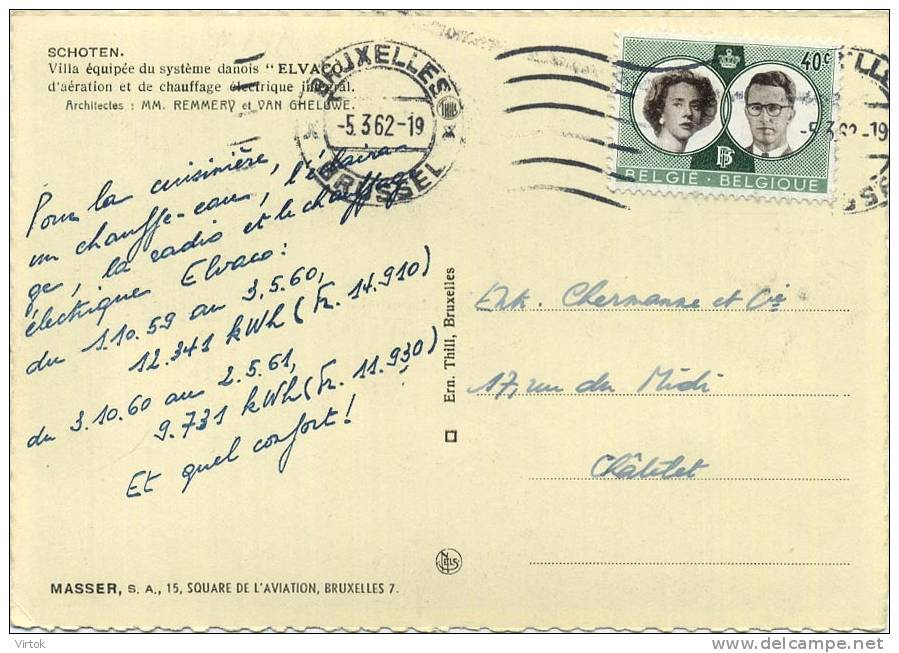 SCHOTEN.
Villa équipée du système danois "ELVACO"
d'aération et de chauffage électrique intégral.
Architectes : MM. REMMERY et VAN GHELUWE.
BRUXELLES
-5.3.62-19
BRUSSEL
40c
BELGIE - BELGIQUE
-5.3.62-19
Pour la cuisinière,
un chauffe-eau, l'éclaira-
ge, la radio et le chauffage
électrique Elvaco:
du 1.10.59 au 3.5.60,
12.341 kWh (Fr. 14.910)
du 3.10.60 au 2.5.61,
9.731 kWh (Fr. 11.930)
Et quel confort!
Ern. Thill, Bruxelles
Ent. Chermanne et Cie
17, rue du Midi
Châtelet
NELS
MASSER, S. A., 15, SQUARE DE L'AVIATION, BRUXELLES 7.
Virtok
http://www.delcampe.net